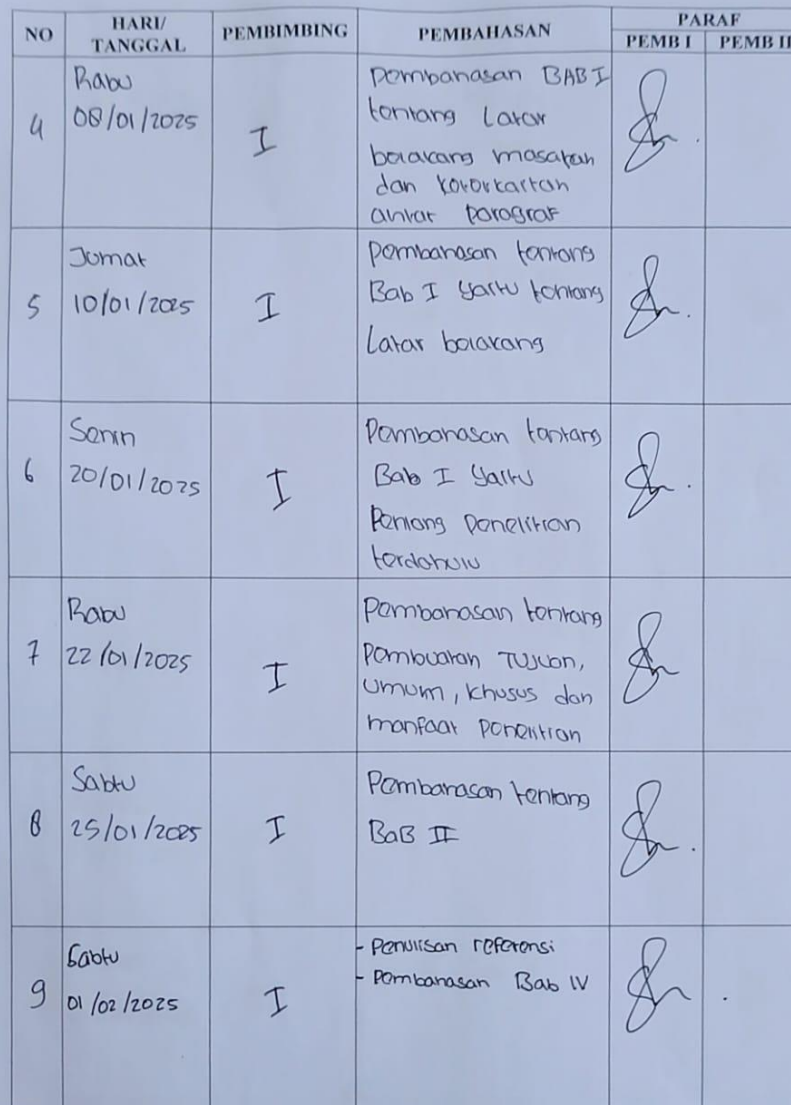 NO HARI/ TANGGAL PEMBIMBING PEMBAHASAN PARAF
PEMB I PEMB II
4 Rabu 08/01/2025 I
Pembahasan BAB I
tentang Latar
belakang masalah
dan keterkaitan
antar paragraf
5 Jumat 10/01/2025 I
Pembahasan tentang
Bab I yaitu tentang
Latar belakang
6 Senin 20/01/2025 I
Pembahasan tentang
Bab I yaitu
Pentang penelitian
terdahulu
7 Rabu 22/01/2025 I
Pembahasan tentang
Pembuatan Tujuan,
Umum, khusus dan
manfaat penelitian
8 Sabtu 25/01/2025 I
Pembahasan tentang
BaB II
9 Sabtu 01/02/2025 I
- Penulisan referensi
- Pembahasan Bab IV